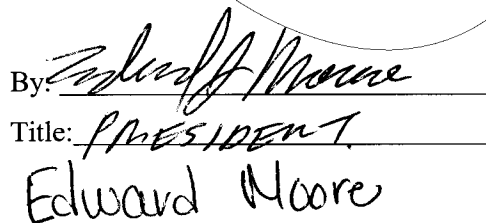 By: Edward J Moore
Title: PRESIDENT.
Edward Moore